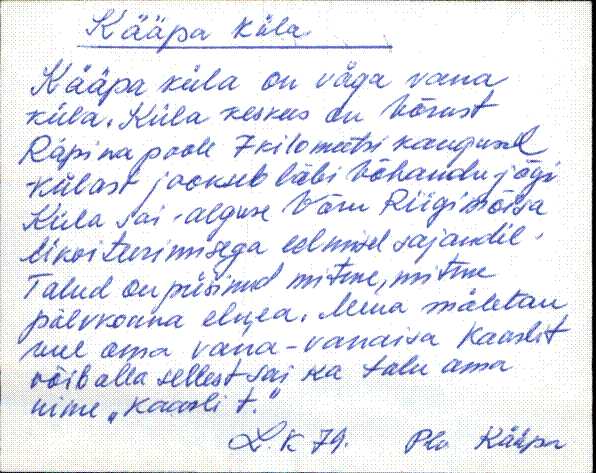 Kääpa küla
Kääpa küla on väga vana
küla. Küla keskus on Võrust
Räpina poole 7 kilomeetri kaugusel
Külast jookseb läbi Võhandu jõgi
Küla sai alguse Võru Riigimõisa
likviteerimisega eelmisel sajandil.
Talud on püsinud mitme, mitme
põlvkonna eluea. Mina mäletan
veel oma vana-vanaisa Kaarlit
võib olla sellest sai ka talu oma
nime „Kaarli t."
L. K 79. Kääpa